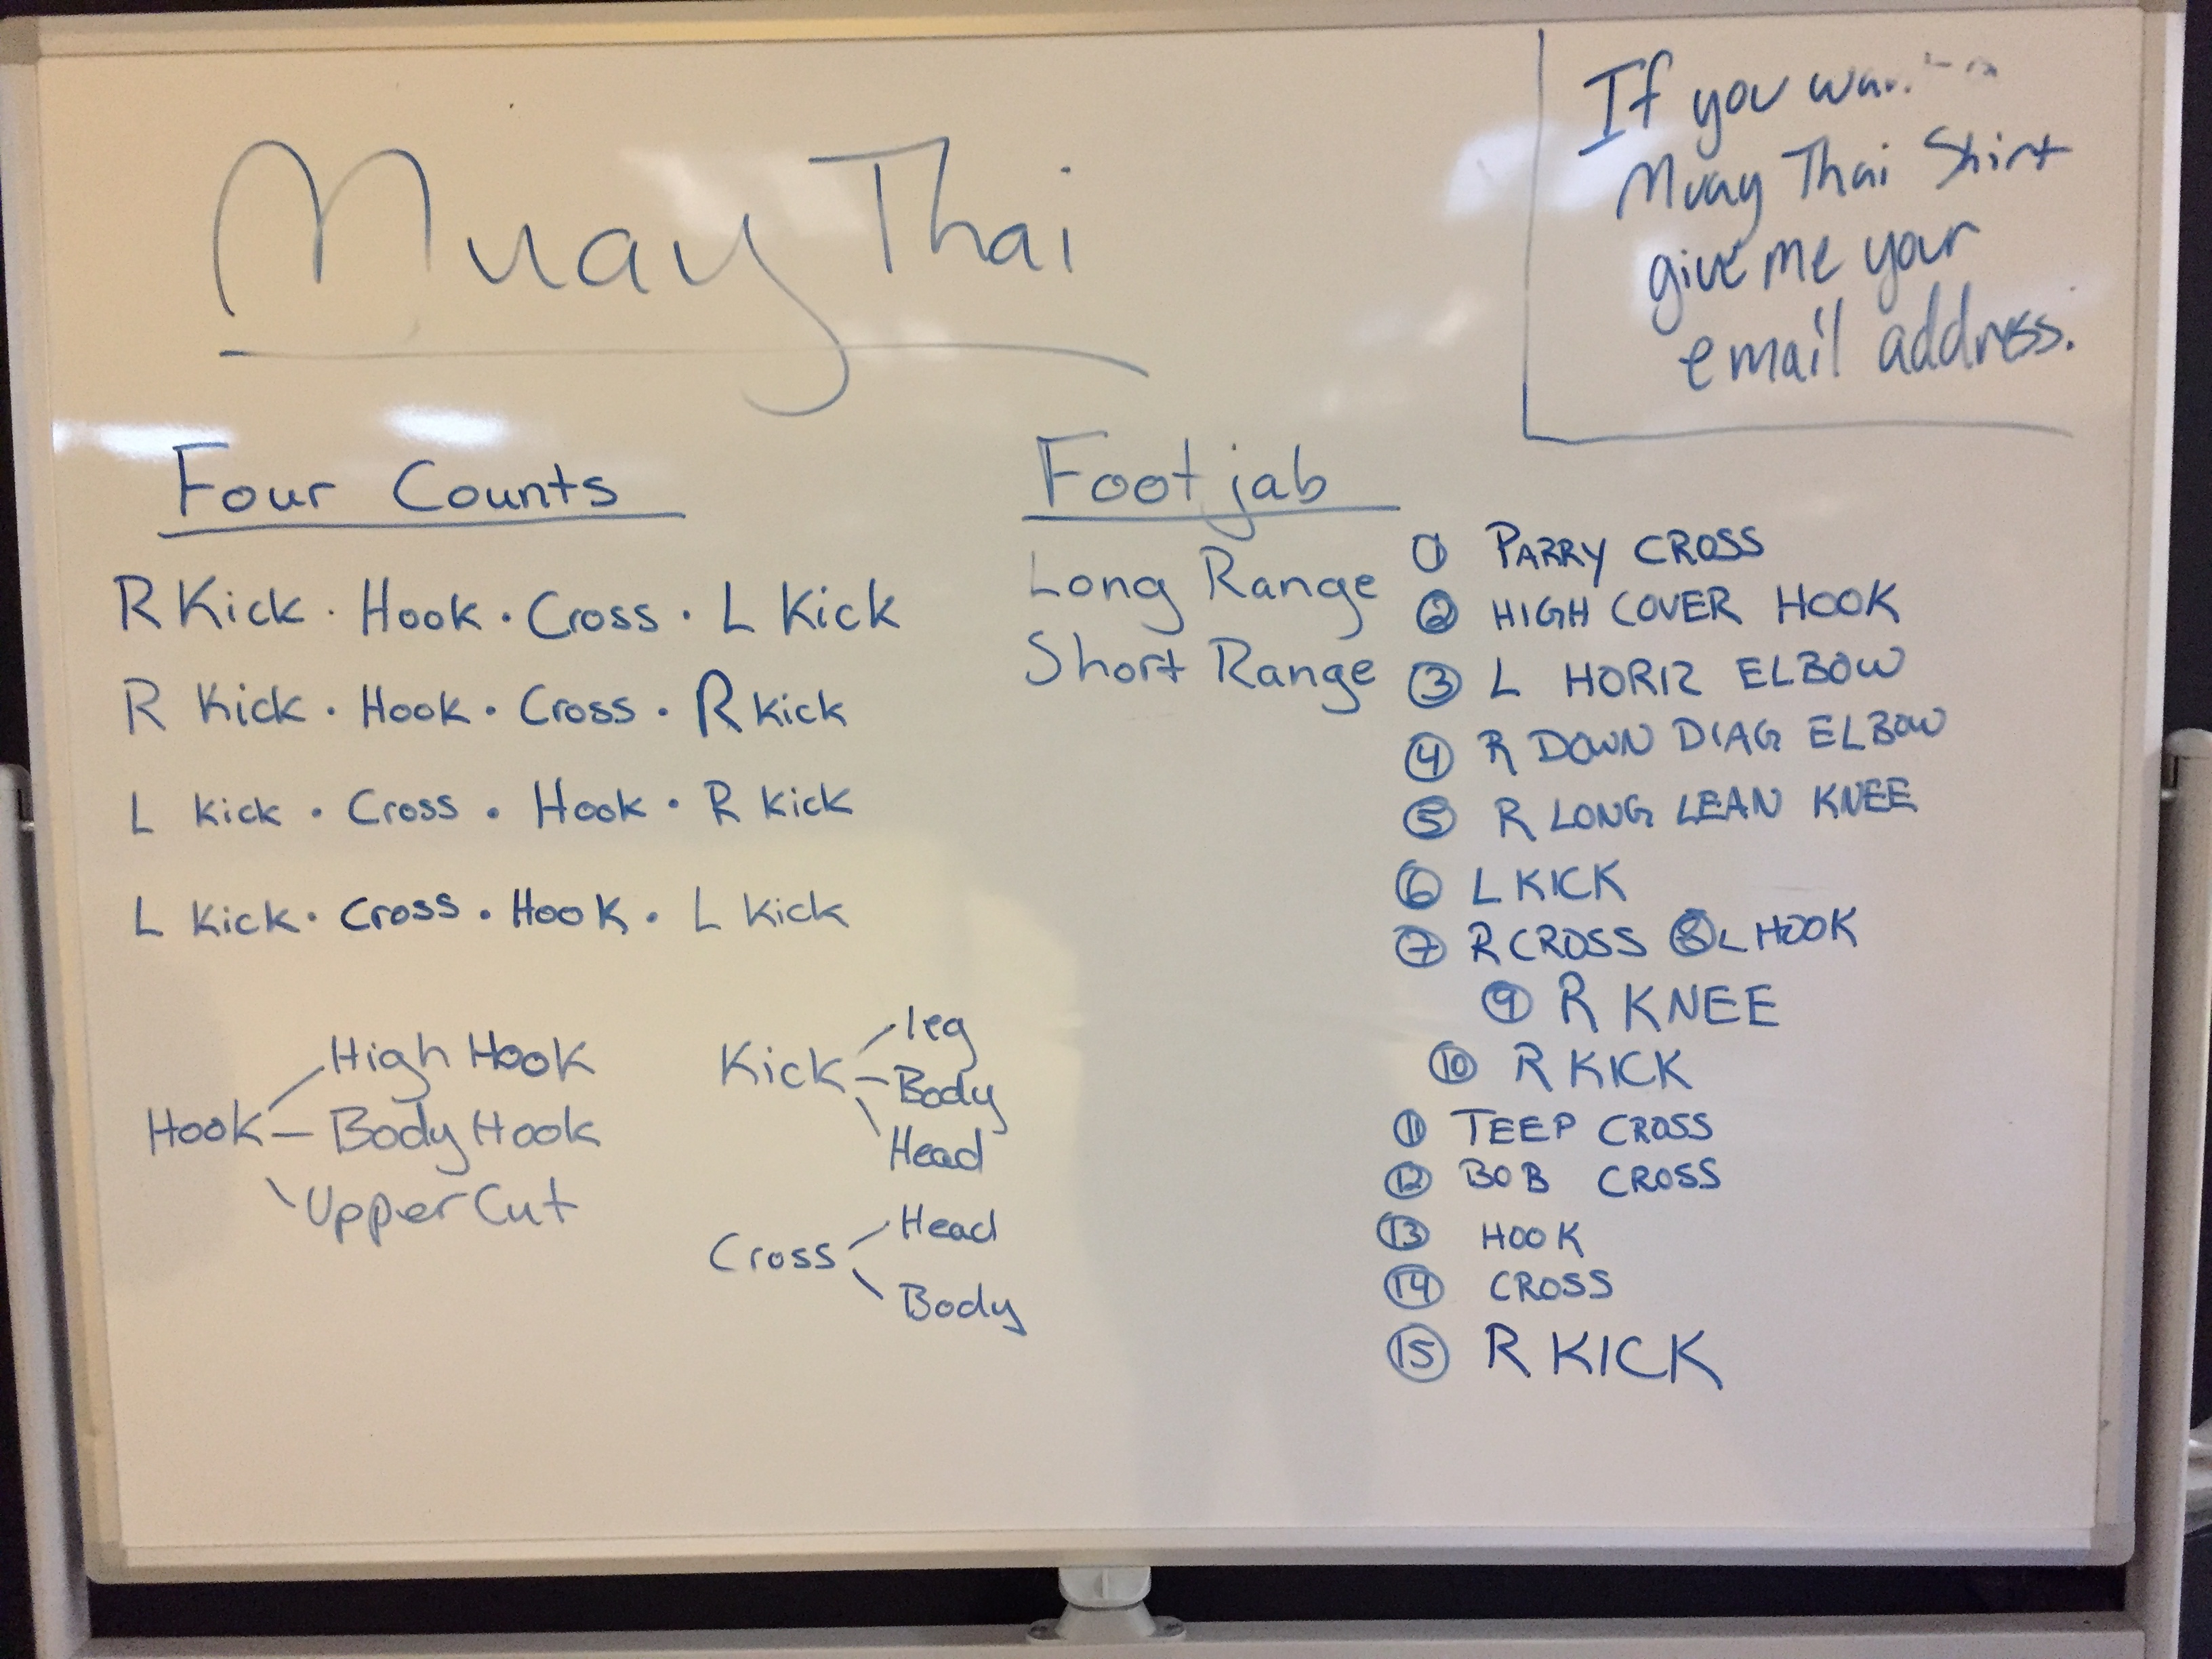 Muay Thai
If you want a
Muay Thai Shirt
give me your
email address.
Four Counts
R Kick · Hook · Cross · L Kick
R Kick · Hook · Cross · R Kick
L Kick · Cross · Hook · R Kick
L Kick · Cross · Hook · L Kick
Hook
High Hook
Body Hook
Upper Cut
Kick
leg
Body
Head
Cross
Head
Body
Foot jab
Long Range
Short Range
1 PARRY CROSS
2 HIGH COVER HOOK
3 L HORIZ ELBOW
4 R DOWN DIAG ELBOW
5 R LONG LEAN KNEE
6 L KICK
7 R CROSS 8 L HOOK
9 R KNEE
10 R KICK
11 TEEP CROSS
12 BOB CROSS
13 HOOK
14 CROSS
15 R KICK